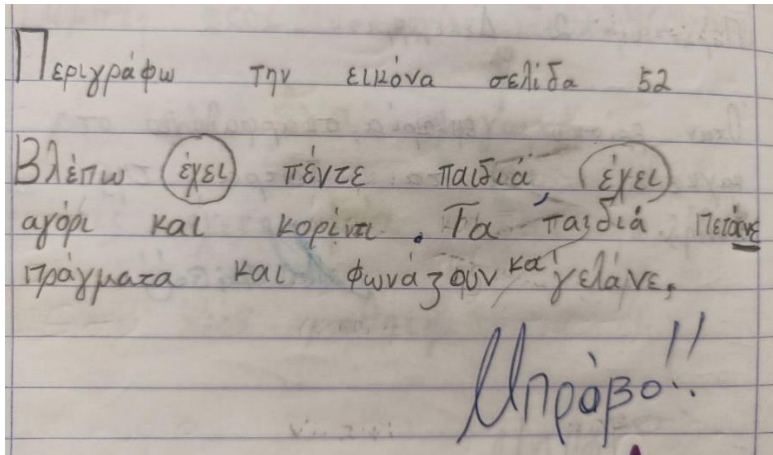 Περιγράφω την εικόνα σελίδα 52
Βλέπω έχει πέντε παιδιά έχει
αγόρι και κορίτι. Τα παιδιά πετάνε
πράγματα και φωνάζουν και γελάνε.
Μπράβο!!